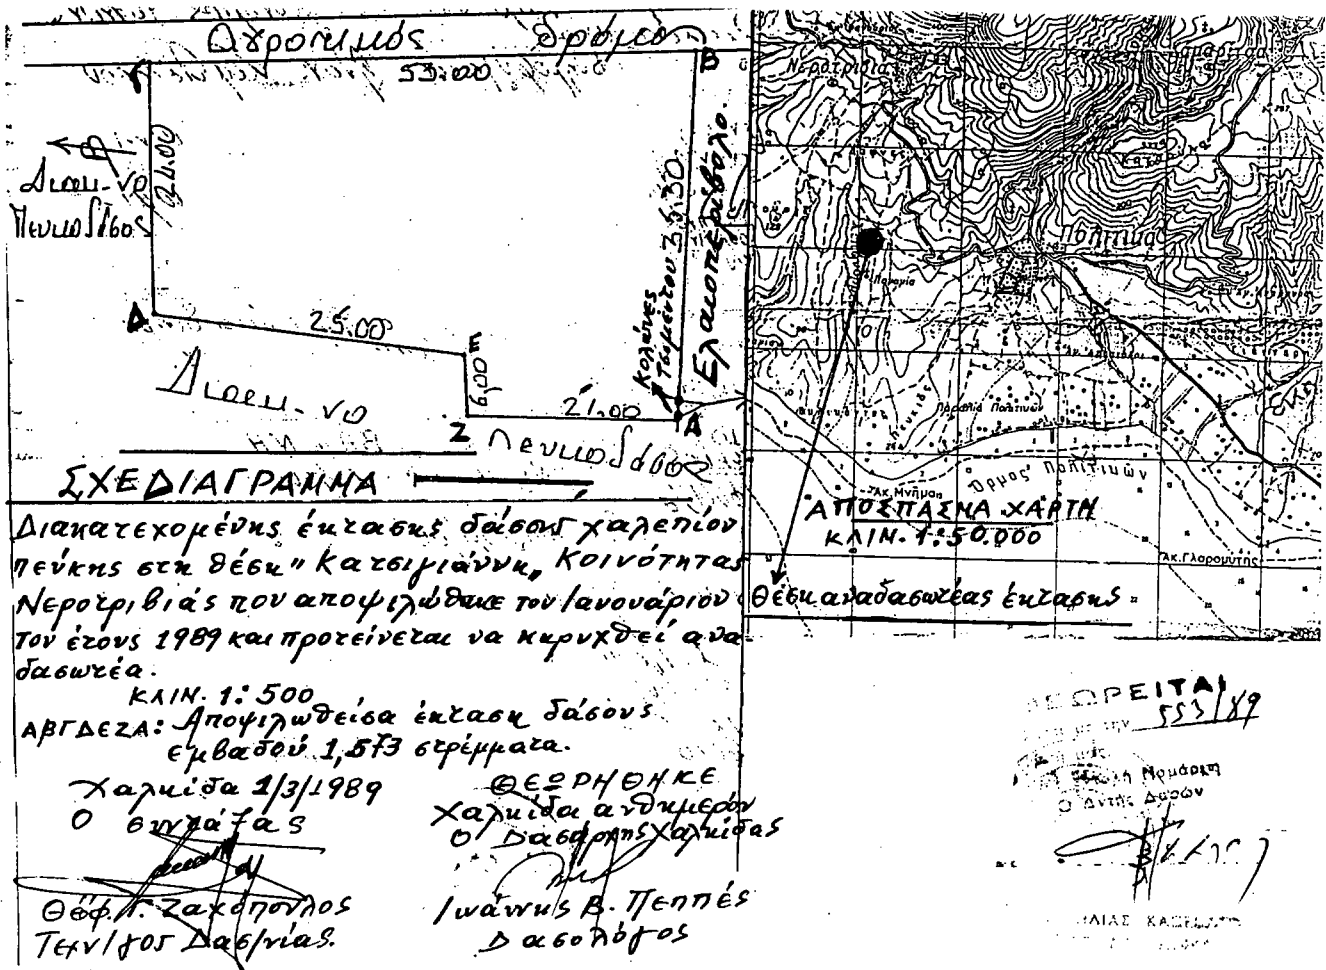 Αγροτικός δρόμος
Γ
53.00
Β
24.00
Β
Διακ-νο
Πευκοδάσος
Δ
25.00
6,00 m
Ζ
21.00
Α
Κολώνες
Τσιμέντου 35.30
Ελαιοπερίβολο.
Διακ-νο
Πευκοδάσος
ΣΧΕΔΙΑΓΡΑΜΜΑ
Διακατεχομένης έκτασης δάσους χαλεπίου
πεύκης στη θέση "Κατσιγιάννη„ Κοινότητας
Νεροτριβιάς που αποψιλώθηκε τον Ιανουάριον
του έτους 1989 και προτείνεται να κηρυχθεί ανα-
δασωτέα.
ΚΛΙΝ. 1:500
ΑΒΓΔΕΖΑ: Αποψιλωθείσα έκταση δάσους
εμβαδού 1,573 στρέμματα.
Χαλκίδα 1/3/1989
Ο συντάξας
Θεόφ. Γ. Ζαχόπουλος
Τεχν/γος Δασ/νίας.
ΘΕΩΡΗΘΗΚΕ
Χαλκίδα αυθημερόν
Ο Δασάρχης Χαλκίδας
Ιωάννης Β. Πεππές
Δασολόγος
Νεροτριβιά
Πολιτικά
Παραλία Πολιτικών
Όρμος Πολιτικών
Ακ. Μνήμα
Ακ. Γλαρομύτης
ΑΠΟΣΠΑΣΜΑ ΧΑΡΤΗ
ΚΛΙΝ. 1:50.000
Θέση αναδασωτέας έκτασης
ΘΕΩΡΕΙΤΑΙ
με την 553/89
Νομάρχη
Ο Δντής Δασών
ΗΛΙΑΣ